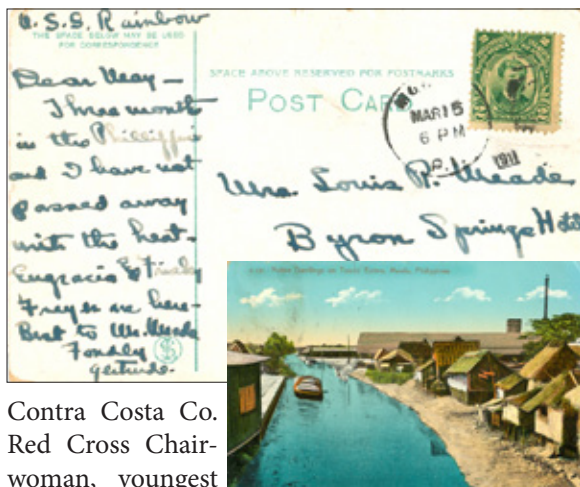 U.S.S. Rainbow
THE SPACE BELOW MAY BE USED
FOR CORRESPONDENCE
Dear May —
Three month
in the Phillippi
and I have not
passed away
with the heat-
Engracia &
Freyer are here-
Best to Mr. Meade
Fondly
Gertrude.
SPACE ABOVE RESERVED FOR POSTMARKS
POST CARD
MAR 15
6 PM
P.I.
1911
Mrs. Louis R. Meade
Byron Springs Hotel
Native Dwellings on Tondo Estero, Manila, Philippines
Contra Costa Co.
Red Cross Chair-
woman, youngest